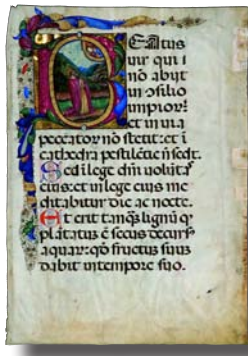 BEatus
uir qui i
nō abijt
in ɔſilio
impioꝝ:
et in uia
peccatoꝝ nō ſtetit: et ī
cathedra peſtilētie nō ſedit.
Sed ī lege dn̄i uolūtaſ
eius: et in lege eius me
ditabitur die ac nocte.
Et erit tamqᷓ lignū qď
plātatuʒ ē ſecus decurſꝰ
aquaꝝ: qď fructus ſuuʒ
dabit in tempoꝛe ſuo.